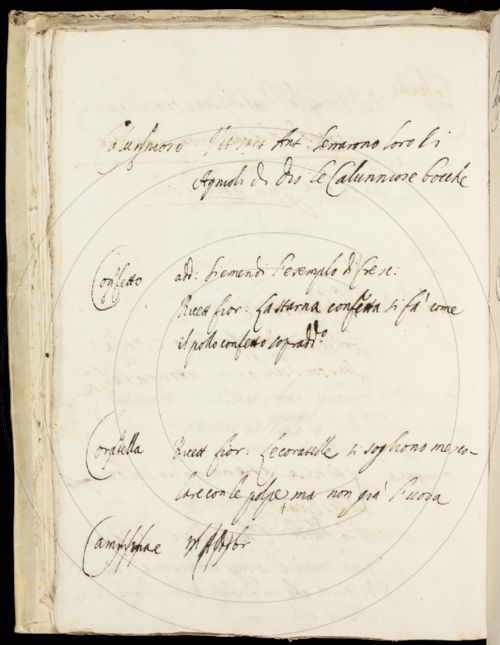 Calunnioso Vit. Sant. Ant: Serrarono loro li
Agnioli di Dio le Calunniose bocche
Confetto add: si emendi l'esemplo di Cresc:
Ricett fior: La starna confetta si fa come
il pollo confetto sopradd.º
Coratella Ricett fior: Le coratelle si sogliono mesco-
lare con le polpe, ma non già l'uova